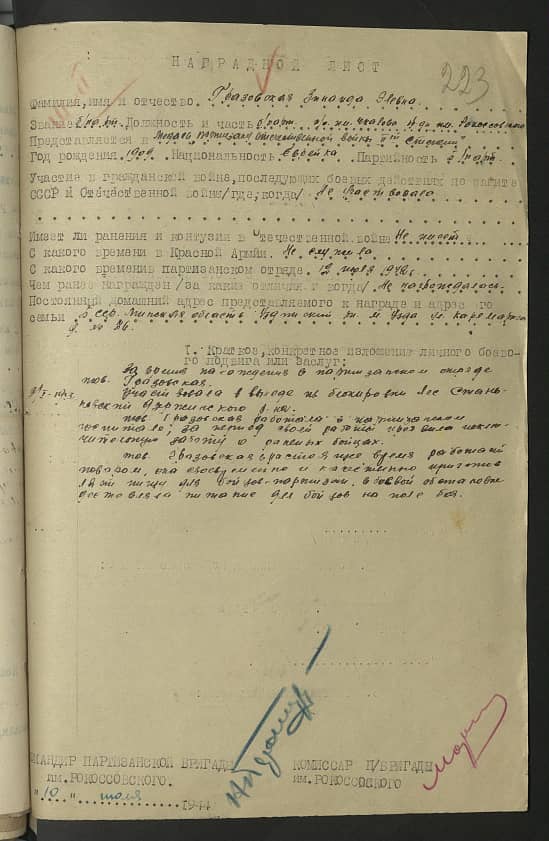 223
НАГРАДНОЙ ЛИСТ
Фамилия,имя и отчество. Гразовская Зинаида
Звание Должность и часть парт. о/о. им. Чкалова п. бр. им. Рокоссовского
Представляется к Медаль, партизану Отечественной войны" II ст степени
Год рождения. 1909. Национальность. Еврейка. Партийность. б/парт.
Участие в гражданской войне,последующих боевых действиях по защите
СССР и Отечественной войне/где,когда/. Не участвовала
Имеет ли ранения и контузии в отечественной войне Не имеет
С какого времени в Красной Армии. Не служила
С какого времени в партизанском отряде. 12 1942г.
Чем ранее награжден/за какие отличия и когда/ Не награждалась.
Постоянный домашний адрес представляемого к награде и адрес его
семьи БССР Минская область Узденский м. Узда ул. Карл Маркса
д. № 26.
I. Краткое,конкретное изложение личного боево-
го подвига или заслуг:
За время нахождения в партизанском отряде
тов. Гразовская.
участвовала в выходе из блокировки лес Стань-
ковский Дзержинского р-на.
тов. Гразовская работала в партизанском
госпитале, за период своей работы проявила исклю-
чительную заботу о раненых бойцах.
тов. Гразовская в настоящее время работает
поваром, она своевременно и качественно приготов-
ляет пищу для бойцов-партизан, в боевой обстановке
доставляла питание для бойцов на поле боя.
КОМАНДИР ПАРТИЗАНСКОЙ БРИГАДЫ КОМИССАР П/БРИГАДЫ
им.РОКОССОВСКОГО. им.РОКОССОВСКОГО
"10" июля 1944